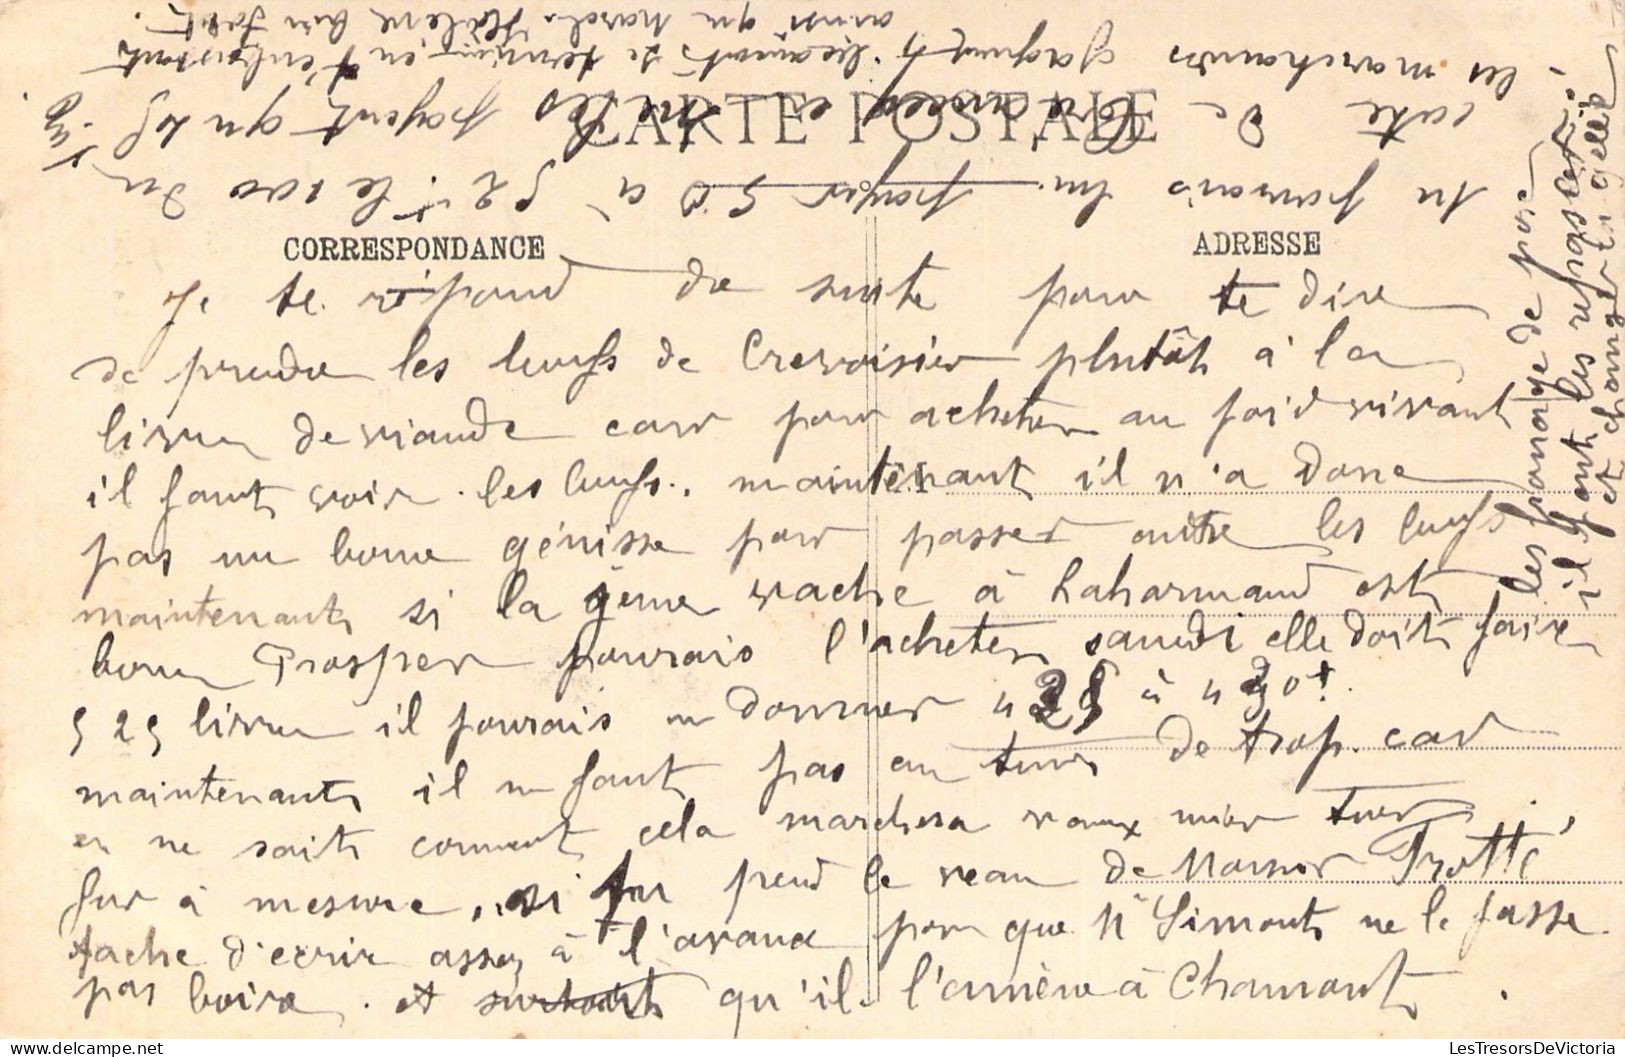 CARTE POSTALE
CORRESPONDANCE
ADRESSE
Je te répond de suite pour te dire
de prendre les bœufs de Crevoisier plutôt à la
livre de viande car pour acheter au poid vivant
il faut voir les bœufs. maintenant il n'a donc
pas une bonne génisse pour passer outre les bœufs
maintenant si la jeune vache à Laharmand est
bonne Prosper pourrais l'acheter samedi elle doit faire
525 livre il pourrais en donner 425 à 430 f.
maintenant il ne faut pas en tuer de trop car
on ne sait comment cela marchera vaux mieux tuer
fur à mesure, si tu prend le veau de Monsieur Trotté
tache d'ecrire assez à l'avance pour que Mr Simont ne le fasse
pas boire. et surtout qu'il l'amène à Chamont.
tu pourrais lui payer 50 à 52 f le 100 du
coté de
les payent que 45
les marchands
ainsi que
les fromage de pore
il faut les repasser
et changer la gellée
LesTresorsDeVictoria